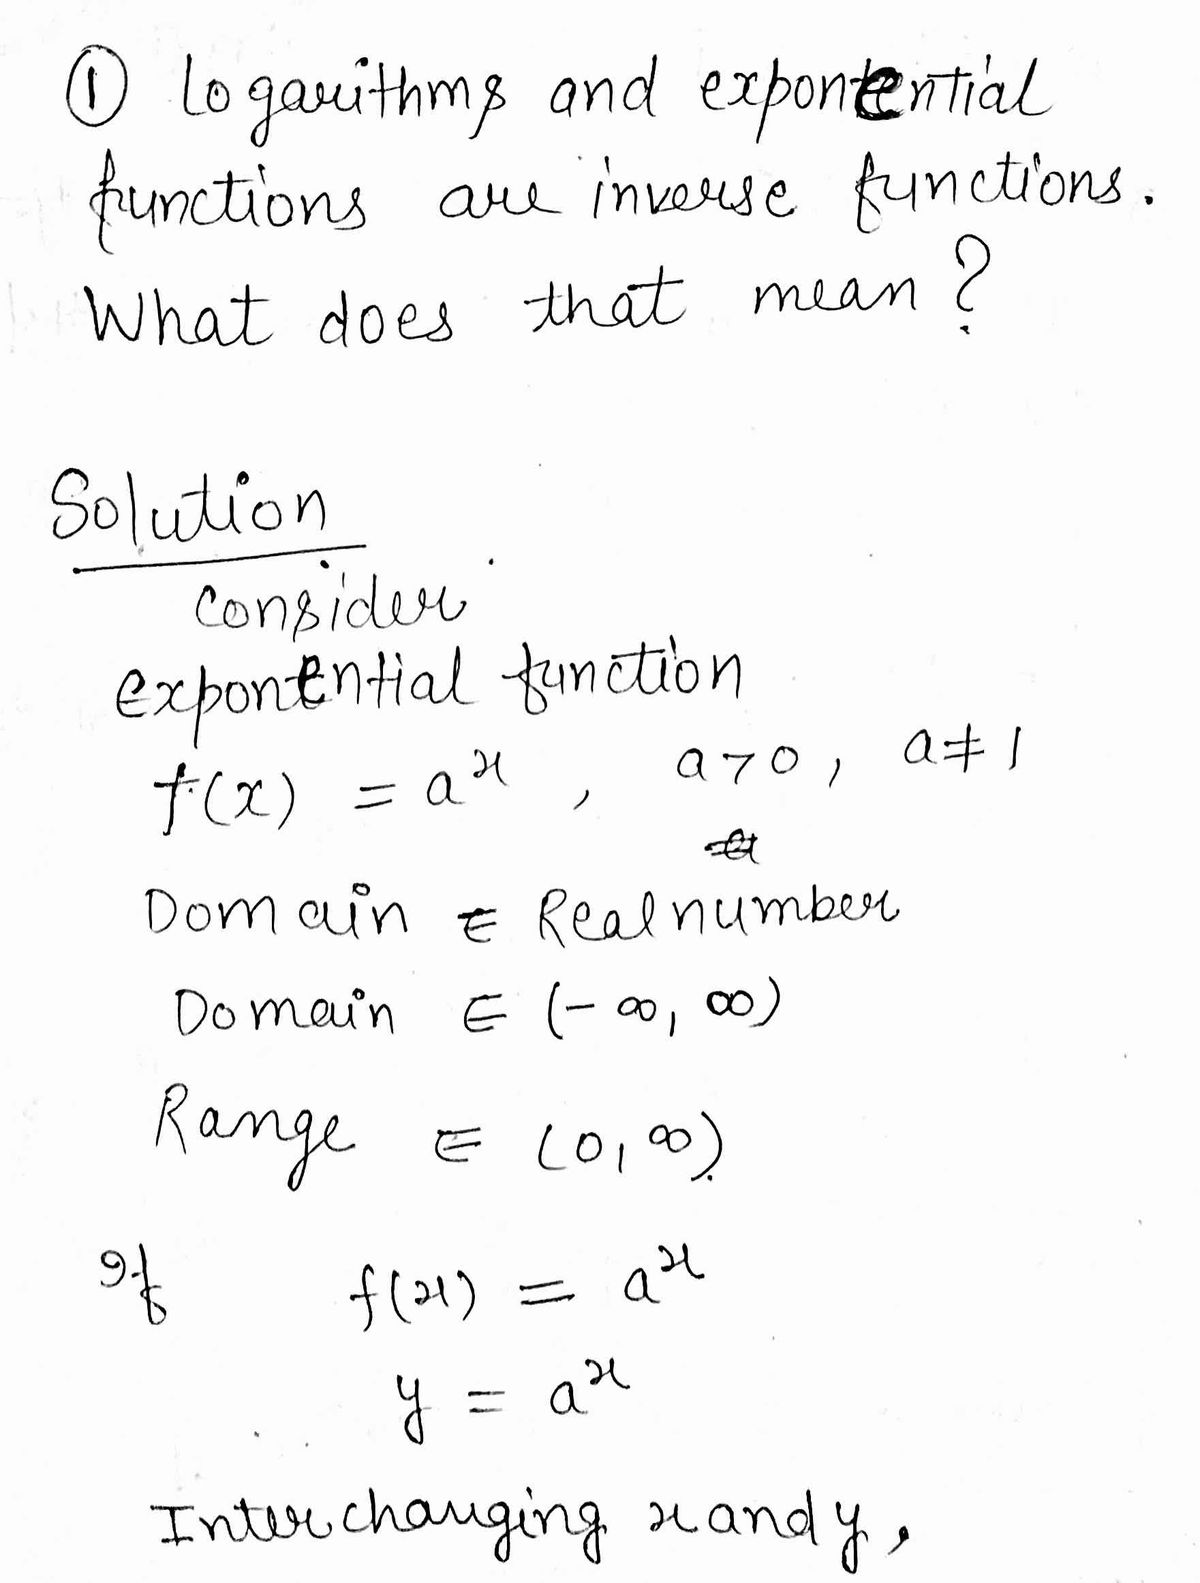 ① Logarithms and exponential
functions are inverse functions.
What does that mean?
Solution
Consider
exponential function
f(x) = a^x , a>0, a≠1
Domain ∈ Real number
Domain ∈ (-∞, ∞)
Range ∈ (0, ∞).
If f(x) = a^x
y = a^x
Interchanging x and y,